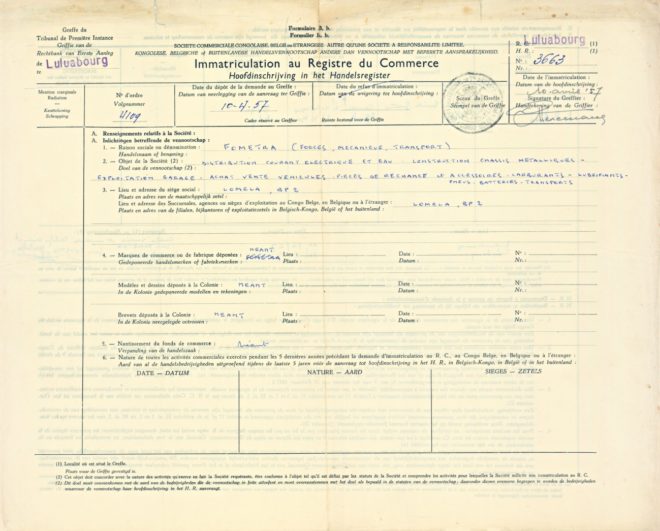 Formulaire 3. b.
Formulier 3. b.
Greffe du
Tribunal de Première Instance
Griffie van de
Rechtbank van Eerste Aanleg
de Luluabourg
te
SOCIETE COMMERCIALE CONGOLAISE, BELGE OU ETRANGERE AUTRE QU'UNE SOCIETE A RESPONSABILITE LIMITEE.
KONGOLESE, BELGISCHE of BUITENLANDSE HANDELSVENNOOTSCHAP ANDERE DAN VENNOOTSCHAP MET BEPERKTE AANSPRAKELIJKHEID.
Immatriculation au Registre du Commerce
Hoofdinschrijving in het Handelsregister
R. Luluabourg (1)
H. (1)
N° : 3663
Nr. :
Mention marginale
Radiation
Kanttekening
Schrapping
N° d'ordre
Volgnummer
4109
Date du dépôt de la demande au Greffe :
Datum van neerlegging van de aanvraag ter Griffie :
10-4-57
Cadre réservé au Greffe
Date du refus d'immatriculation :
Datum van de weigering tot hoofdinschrijving :
Ruimte bestemd voor de Griffie
Sceau du Greffe
Stempel van de Griffie
Date de l'immatriculation :
Datum der hoofdinschrijving :
10 avril '57
Signature du Greffier :
Handtekening van de Griffier :
A. Renseignements relatifs à la Société :
A. Inlichtingen betreffende de vennootschap :
1. — Raison sociale ou dénomination : FOMETRA (FORCES, MECANIQUE, TRANSPORT)
Handelsnaam of benaming :
2. — Objet de la Société (2) : DISTRIBUTION COURANT ELECTRIQUE ET EAU - CONSTRUCTION CHASSIS METALLIQUES -
Doel van de vennootschap (2) :
EXPLOITATION GARAGE - ACHAT VENTE VEHICULES - PIECES DE RECHANGE ET ACCESSOIRES - CARBURANTS - LUBRIFIANTS -
PNEUS - BATTERIES - TRANSPORTS
3. — Lieu et adresse du siège social : LOMELA, BP 2
Plaats en adres van de maatschappelijke zetel :
Lieu et adresse des Succursales, agences ou sièges d'exploitation au Congo Belge, en Belgique ou à l'étranger : LOMELA, BP 2
Plaats en adres van de filialen, bijkantoren of exploitatiezetels in Belgisch-Kongo, België of het buitenland :
4. — Marques de commerce ou de fabrique déposées : NEANT Lieu : Date : N° :
Gedeponeerde handelsmerken of fabrieksmerken : Plaats : Datum : Nr. :
Modèles et dessins déposés à la Colonie : NEANT Lieu : Date : N° :
In de Kolonie gedeponeerde modellen en tekeningen : Plaats : Datum : Nr. :
Brevets déposés à la Colonie : NEANT Lieu : Date : N° :
In de Kolonie neergelegde octrooien : Plaats : Datum : Nr. :
5. — Nantissement du fonds de commerce : Néant
Verpanding van de handelszaak :
6. — Nature de toutes les activités commerciales exercées pendant les 5 dernières années précédant la demande d'immatriculation au R. C., au Congo Belge, en Belgique ou à l'étranger :
Aard van al de handelsbedrijvigheden uitgeoefend tijdens de laatste 5 jaren vóór de aanvraag tot hoofdinschrijving in het H. R., in Belgisch-Kongo, in België of in het buitenland :
DATE – DATUM
NATURE – AARD
SIEGES – ZETELS
(1) Localité où est situé le Greffe.
Plaats waar de Griffie gevestigd is.
(2) Cet objet doit concorder avec la nature des activités qu'exerce en fait la Société requérante, être conforme à l'objet tel qu'il est défini par les statuts de la Société et comprendre les activités pour lesquelles la Société sollicite son immatriculation au R. C.
(2) Dit doel moet overeenkomen met de aard van de bedrijvigheden die de vennootschap in feite uitoefent en moet overeenstemmen met het doel als bepaald in de statuten van de vennootschap; daaronder dienen eveneens begrepen te worden de bedrijvigheden waarvoor de vennootschap haar hoofdinschrijving in het H. R. aanvraagt.